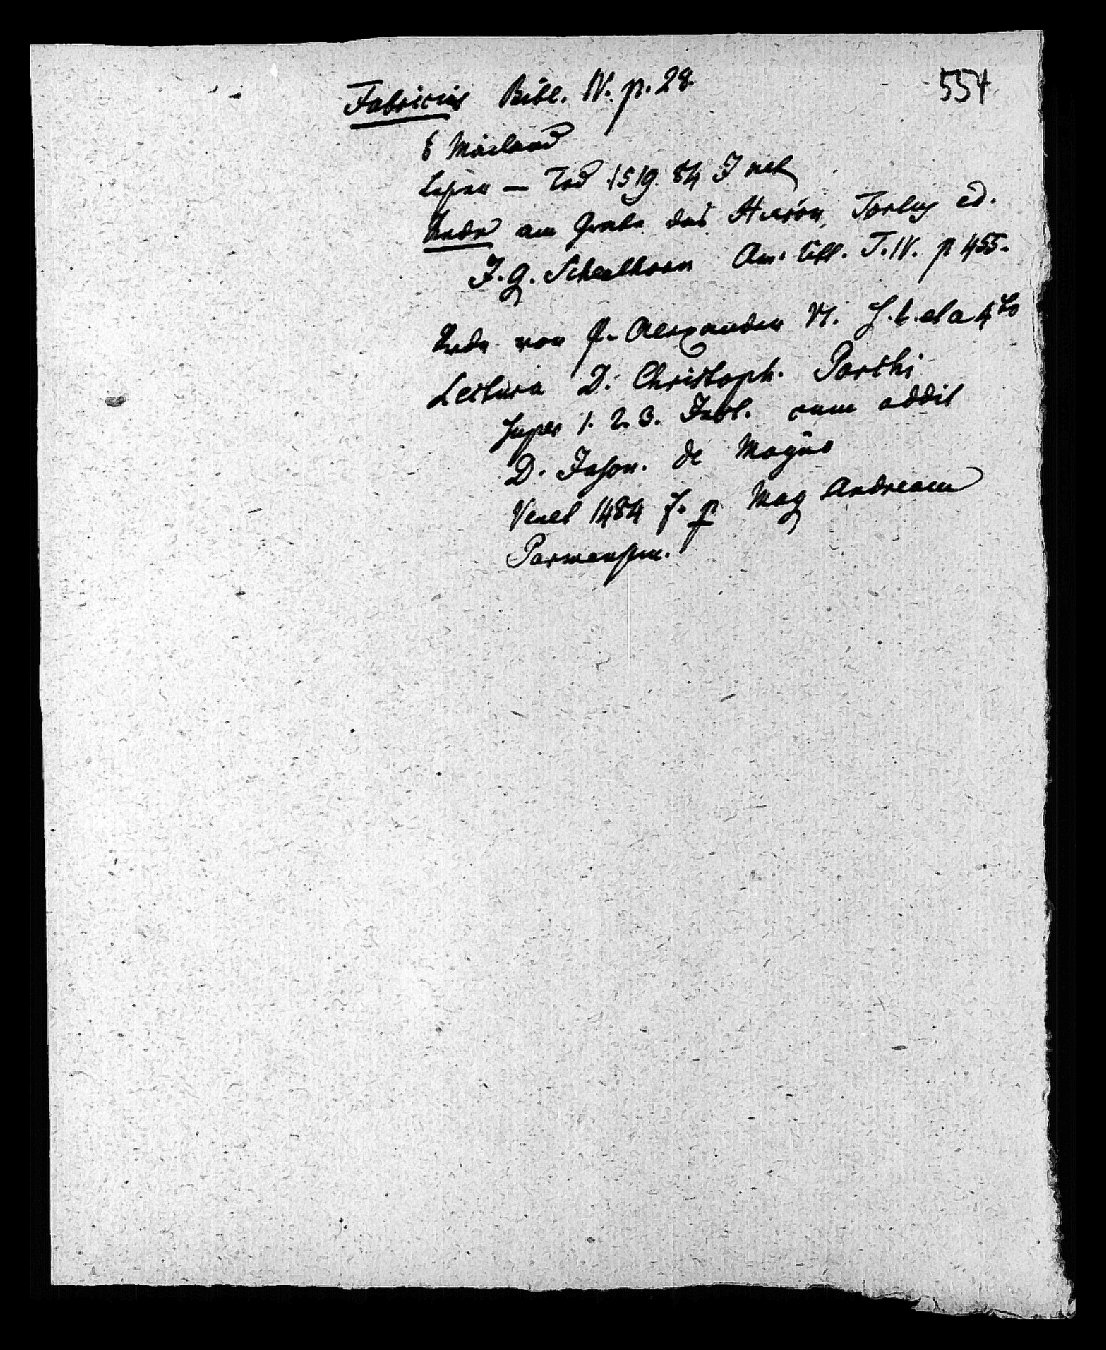 554
Fabricius Bibl. IV. p. 28
Mailand
— Tod 1519. 84 J
Rede am Grabe des Hieron. Torley ed.
J. G. Schelhorn Am. litt. T. IV. p 455.
Rede von P. Alexander VI. s. l. et a 4to
Lectura D. Christoph. Porthi
super 1. 2. 3. Inst. cum addit
D. Jason. de Mayno
Venet 1484 f. p Mag Andream
Parmensem.